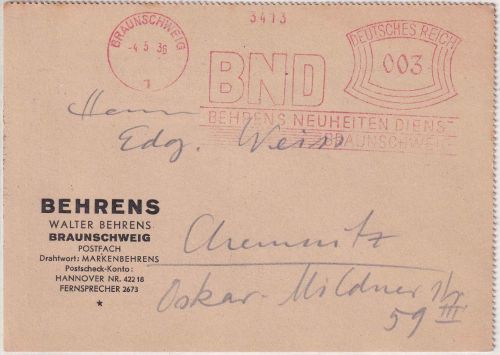 3413
BRAUNSCHWEIG
-4.5.36
1
DEUTSCHES REICH
003
BND
BEHRENS NEUHEITEN DIENST
BRAUNSCHWEIG
Herrn
Edg. Weiss
BEHRENS
WALTER BEHRENS
BRAUNSCHWEIG
POSTFACH
Drahtwort: MARKENBEHRENS
Postscheck-Konto:
HANNOVER NR. 422 18
FERNSPRECHER 2673
Chemnitz
Oskar-Mildner
59 III